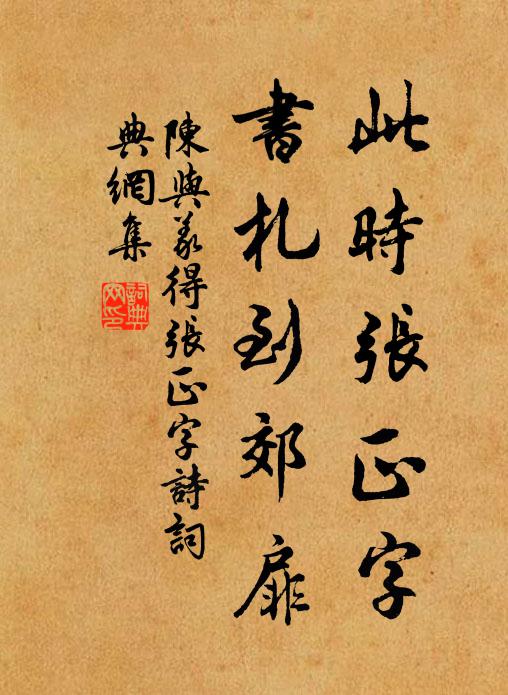 此時張正字
書札到郊扉
陳與義得張正字詩詞
典網集
詞典網印